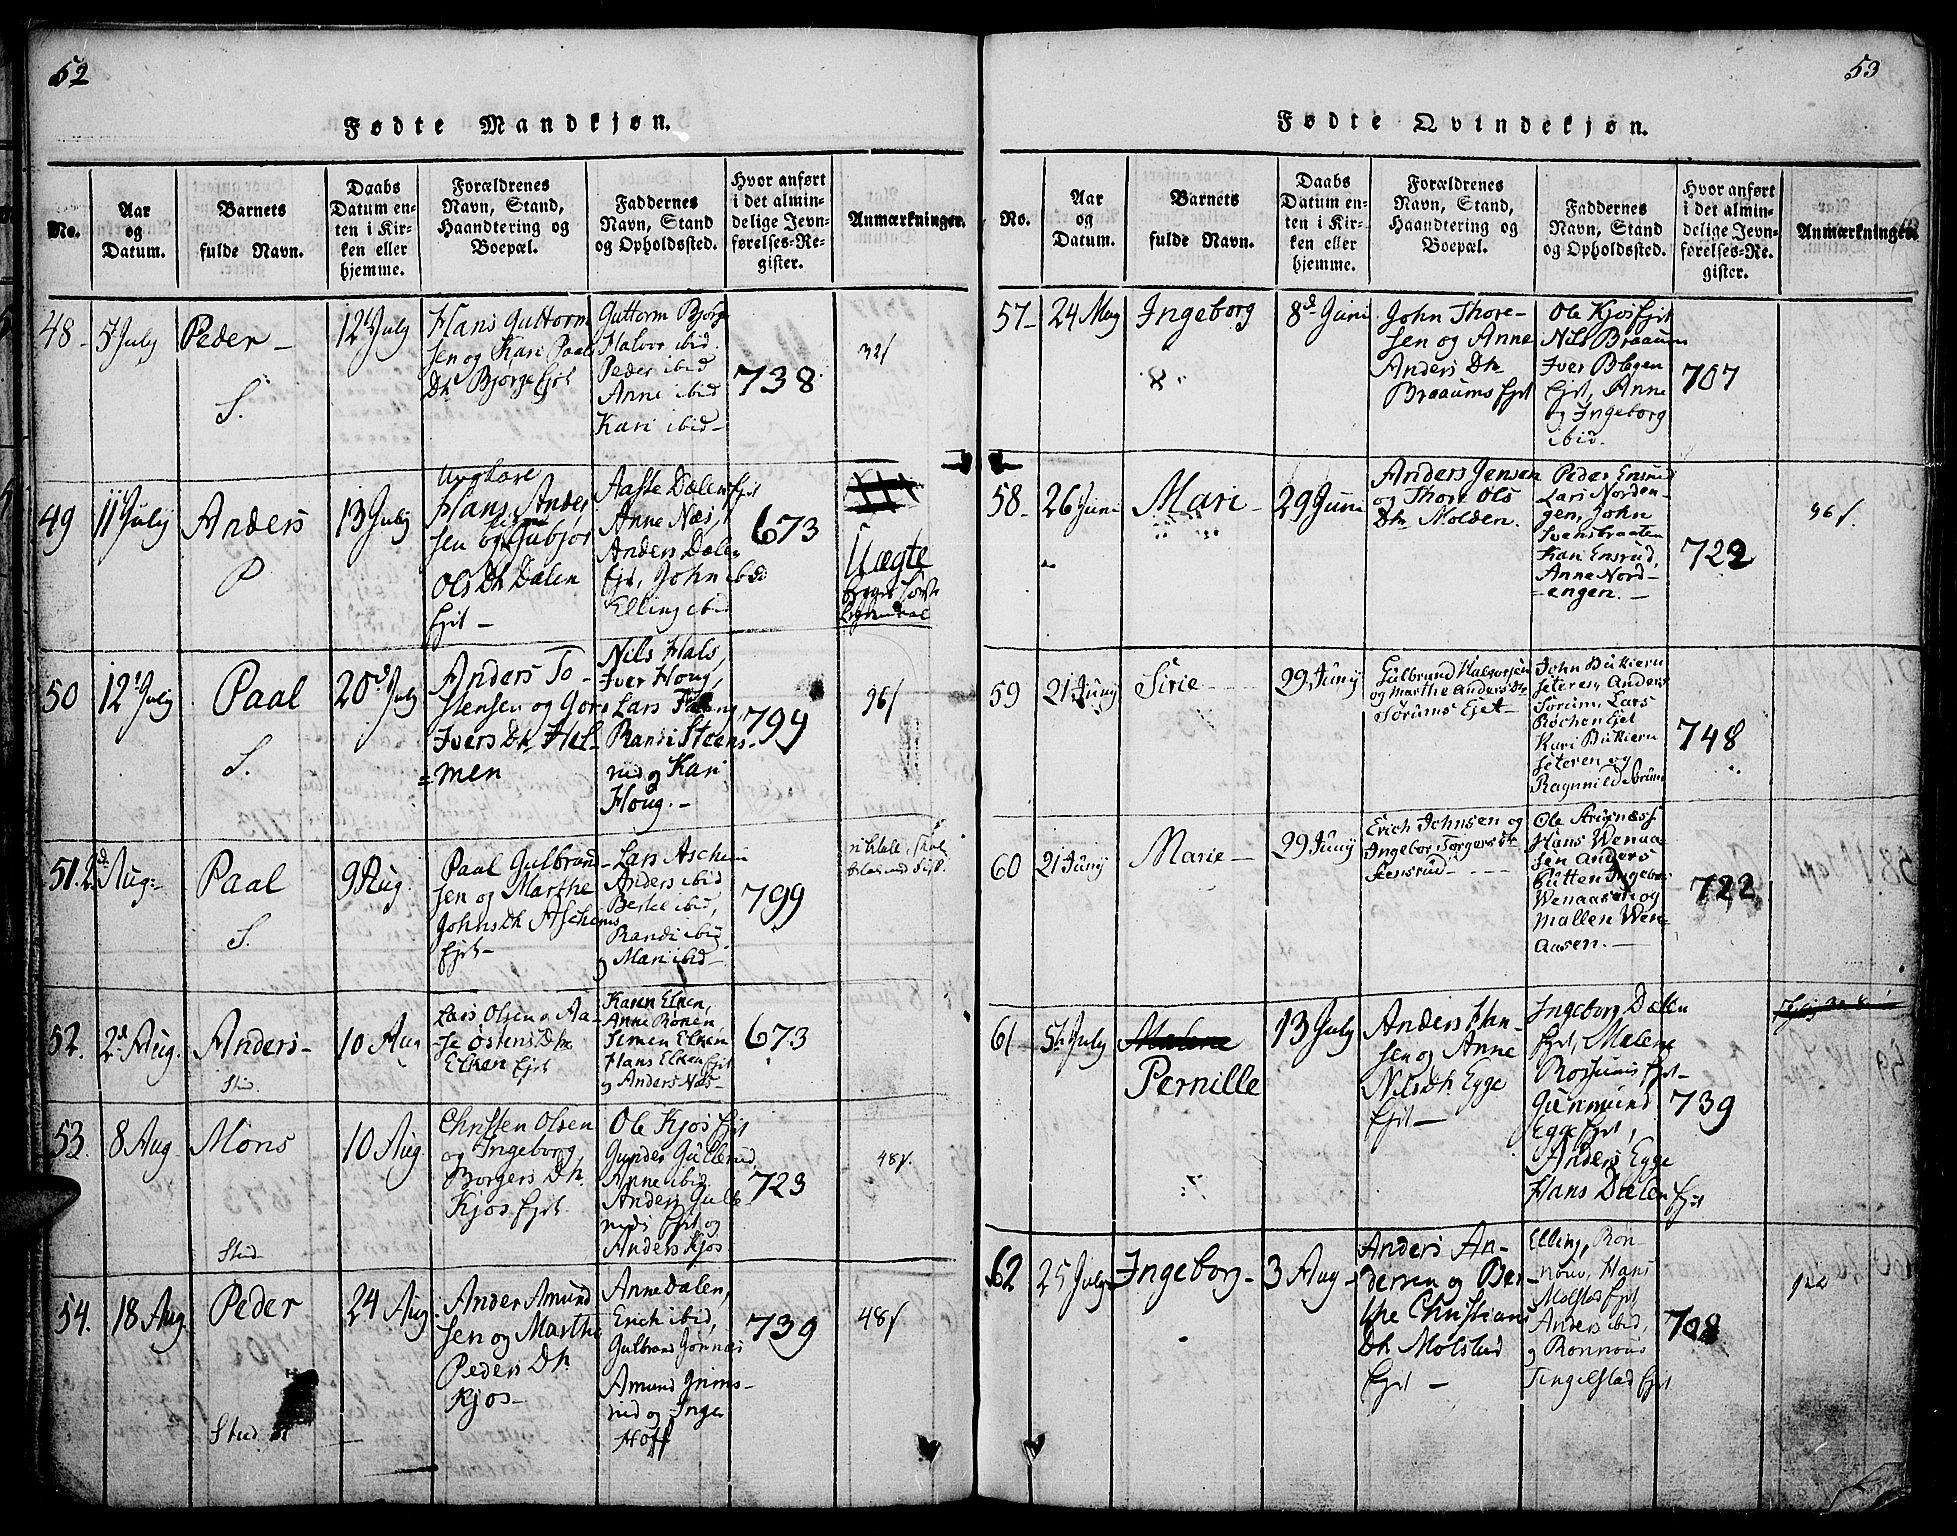 52
Fødte Mandkjøn.
No.
Aar
og
Datum.
Barnets
fulde Navn.
Daabs
Datum en-
ten i Kir-
ken eller
hjemme.
Forældrenes
Navn, Stand,
Haandtering og
Boepæl.
Faddernes
Navn, Stand
og Opholdssted.
Hvor anført
i det almin-
delige Jevn-
førelses-Re-
gister.
Anmærkninger.
48 -
5 July
Peder -
S.
12 July
Hans Guttorm
sen og Kari Paals
Dtr Bjørge Ejet
Guttorm Bjørge
Halvor ibid.
Peder ibid
Anne ibid
Kari ibid -
738
32 s
49
11 July
Anders
P
13 July
Ungkare
Hans Ander
sen og Gubjør
Ols Dtr Dalen
Ejet -
Aaste Dælen Ejet
Anne Næs,
Anders Dælen
Ejet, John ibid
Elling ibid
673
Uægte
50
12 July
Paal
S.
20 July
Anders To-
stensen og Goro
Ivers Dtr Hel-
=men
Nils Hals,
Iver Houg,
Lars Houg
Randi Steens-
rud og Kari
Houg. -
799
96 s
51.
2d Aug:
Paal
S.
9 Aug.
Paal Gulbrand-
sen og Marthe
Johns Dtr Aschems
Ejet -
Lars Aschem
Anders ibid
Bertel ibid,
Randi ibid
og Mari ibid -
799
52.
2d Aug.
Anders -
Stud.
10 Aug
Lars Olsen og Aa-
se Østens Dtr
Elken Ejet
Karen Elken,
Anne Rønen,
Simen Elken
Hans Elken Ejet
og Anders Næs -
673
53.
8 Aug
Mons
Stud
10 Aug
Christen Olsen
og Ingeborg
Borgers Dtr
Kjos Ejet
Ole Kjos Ejet
Gunder Gullerud,
Anne ibid
Anders Gulle
ruds Ejet og
Anders Kjos
723
48 s.
54.
18 Aug.
Peder
Stud
24 Aug
Ander Amund
sen og Marthe
Peders Dtr
Kjos -
Anne Dalen,
Erich ibid,
Gulbrand Jønnæs
Amund Grims-
rud og Inge
Hoff
739
48 s
53
Fødte Qvindekjøn.
No.
Aar
og
Datum.
Barnets
fulde Navn.
Daabs
Datum en-
ten i Kir-
ken eller
hjemme.
Forældrenes
Navn, Stand,
Haandtering og
Boepæl.
Faddernes
Navn, Stand
og Opholdssted.
Hvor anført
i det almin-
delige Jevn-
førelses-Re-
gister.
Anmærkninger.
57 -
24 May
Ingeborg
8d Juni
John Thore-
sen og Anne
Anders Dtr
Braaums Ejet
Ole Kjos Ejet
Nils Braaum
Iver Blegen
Ejet, Anne
og Ingeborg
ibid.
707
58 -
26 Juni
Mari -
29 Juni
Anders Jensen
og Thore Ols
Dtr Molden.
Peder Ensrud
Lars Norden-
gen, John
Svensbraaten
Kari Ensrud,
Anne Nord-
=engen. -
722
96 s.
59
21 Juny
Sirie -
29 Juny
Gulbrand Halvorsen
og Marthe Anders Dtr
Sørums Ejet -
John Buttern
Seteren, Anders
Sørum, Lars
Rochen Ejet
Kari Buttern
Seteren og
Ragnild Sørum
748
60
21 Juny
Marie -
29 Juny
Erich Johnsen og
Ingebor Torgers Dtr
Steensrud - - - -
Ole Strignæss
Hans Wenaa-
sen Anders
Putten Ingebor
Wenaasen og
Mallen Wen-
aasen. -
722
61
5 July
Malene
Pernille
13 July
Anders Han-
sen og Anne
Nils Dtr Egge
Ejet -
Ingeborg Dælen
Ejet, Malene
Rossums Ejet -
Gunmund
Egge Ejet,
Anders Egge
Hans Dælen Ejet
739
62
25 July
Ingeborg -
3 Aug -
Anders An-
dersen og Ber-
the Christians
Dtr Molstad
Ejet -
Elling, Røn-
nøu, Hans
Molstad Ejet
Anders ibid,
og Rønnous
Tingelstad Ejet
708